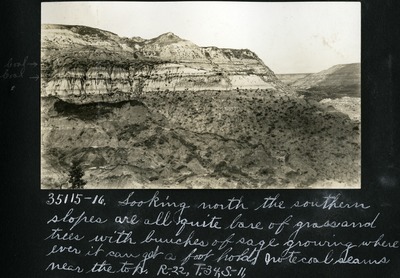 Coal →
Coal →
35115-16. Looking north the southern
slopes are all quite bare of grass and
trees with bunches of sage growing where
ever it can get a foot hold, note coal seams
near the top. R-22, T-34, S-11